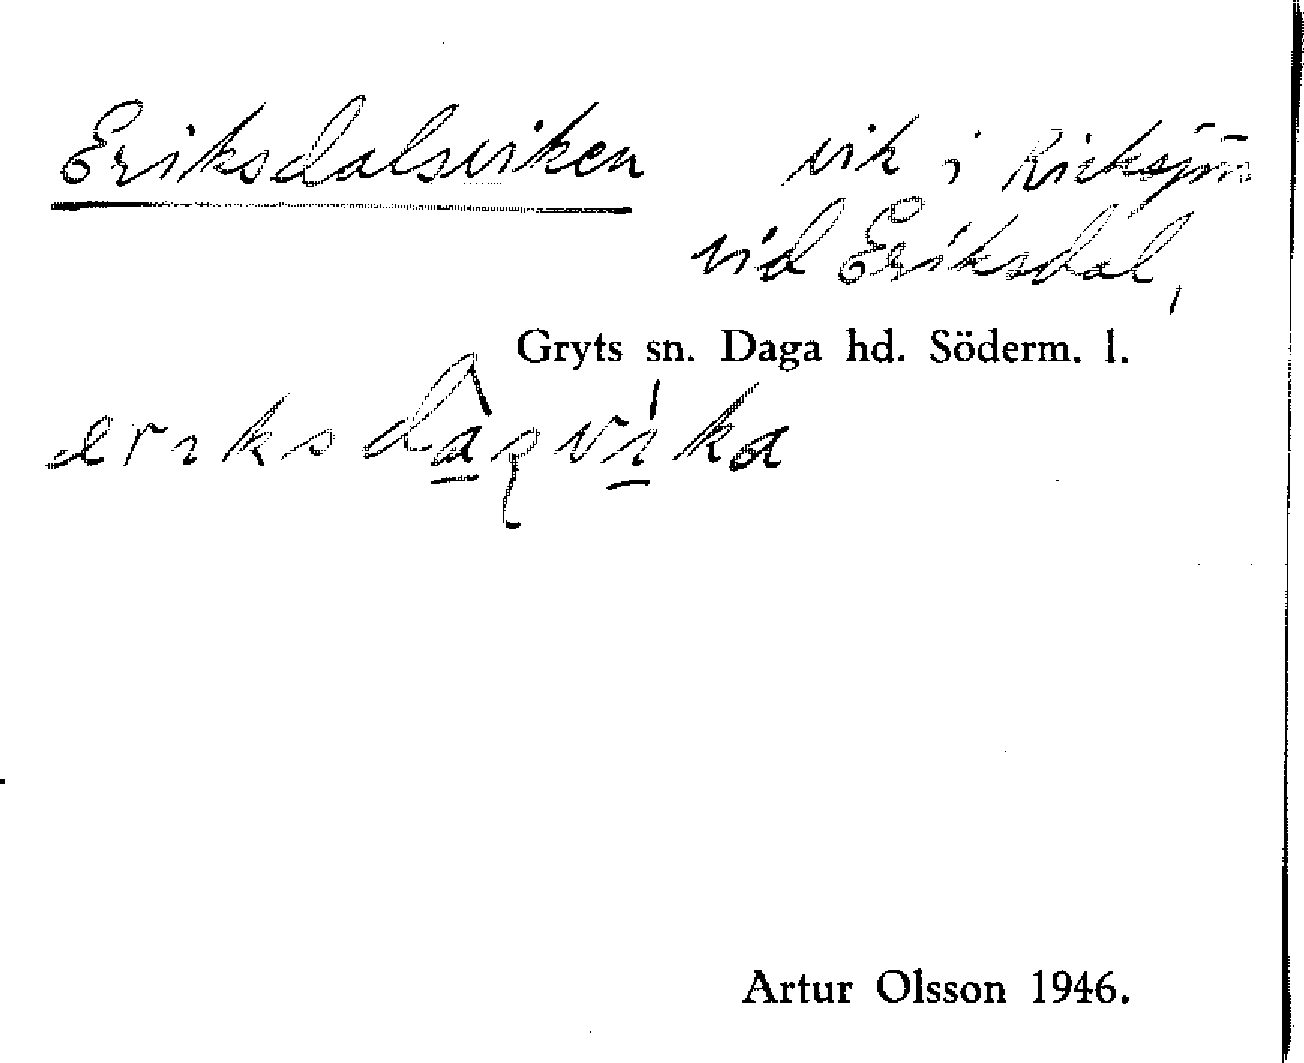 Eriksdalsviken vik i Ricksjön
vid Eriksdal,
Gryts sn. Daga hd. Söderm. l.
Artur Olsson 1946.